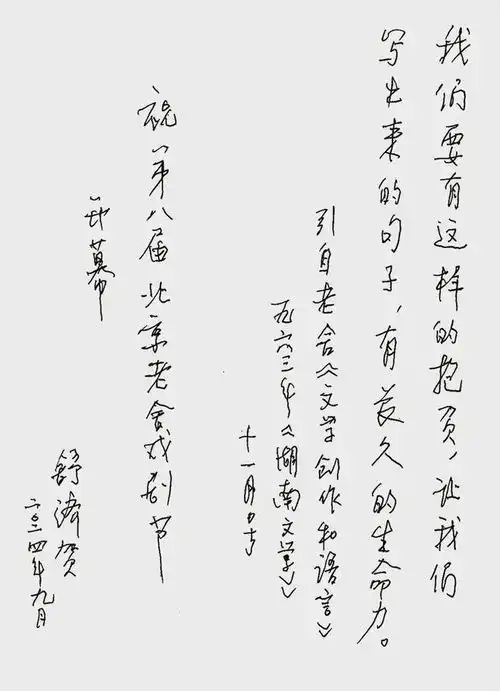 我们要有这样的抱负，让我们
写出来的句子，有长久的生命力。
引自老舍《文学创作和语言》
一九六三年《湖南文学》
十一月号
祝“第八届北京老舍戏剧节
幕
舒济贺
二〇二四年九月